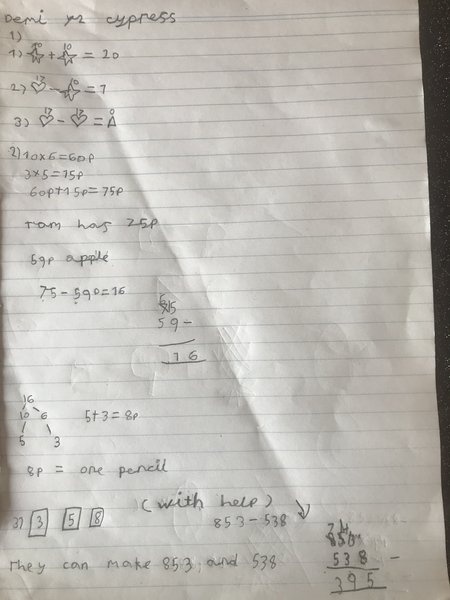 Demi yr2 cypress
1)
10 10
1) ☆ + ☆ = 20
17 10
2) ♡ - ☆ = 7
17 17 0
3) ♡ - ♡ = △
2) 10x6=60p
3x5=15p
60p+15p=75p
ram has 75p
59p apple
75-590=16
6
7 15
59-
16
16
10 6
5 3
5+3=8p
8p = one pencil
(with help)
3) 3 5 8
853-538
They can make 853 and 538
853
538 -
395